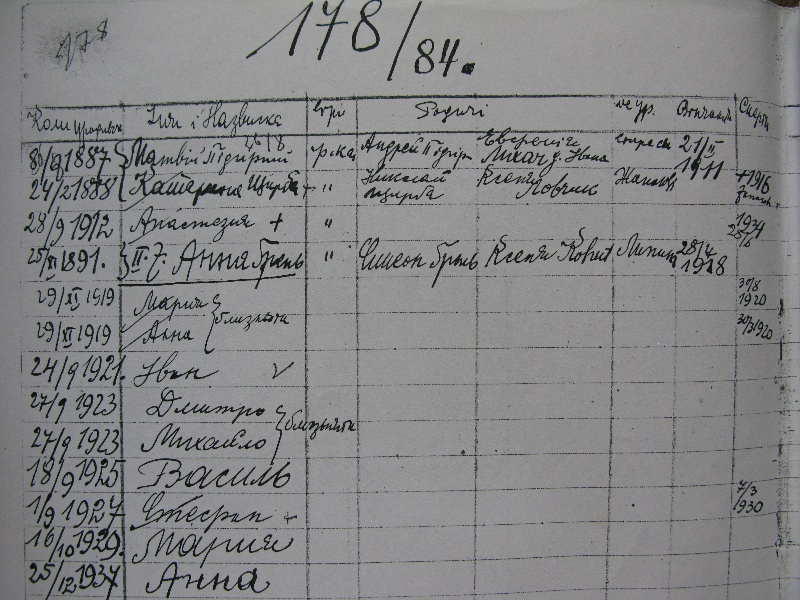 178
178/84.
Коли уродився Імя і Назвиска Обрі Родичі де ур. Вінчания Смерть
1887 Матвій Підгірний р.кат Андрей Підгірн 21/II 1911
24/2 1888 Катерина Щирба + " Николай Щирба Ксения Ловчик +1916
28/9 1912 Анастазия + " 1934 25/6
25/XI 1891. II. Анна Брень " Симеон Брень Ксения 28/4 1918
29/XI 1919 Мария близнята 1920
29/XI 1919 Анна 30/3 1920
24/9 1921. Іван V
27/9 1923 Дмитро близнята
27/9 1923 Михайло
18/9 1925 Василь
1/9 1927 Стефан + 7/3 930
16/10 1929. Мария
25/12 1937 Анна